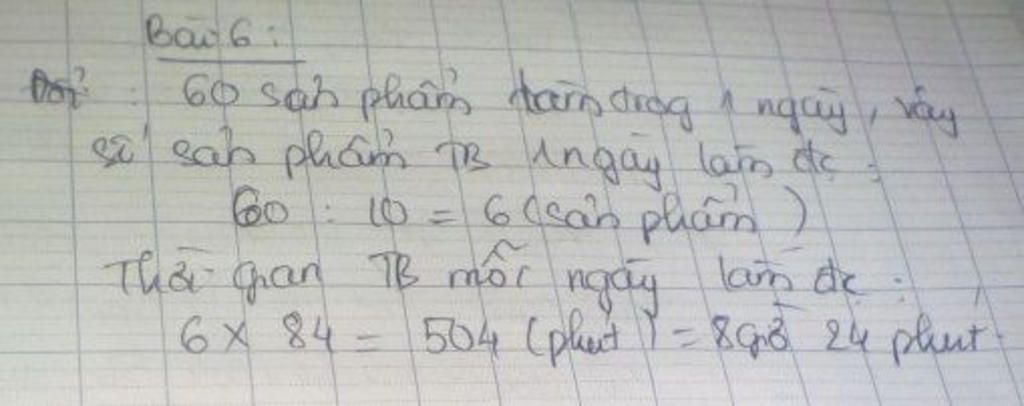 Bài 6:
Đổi: 60 sản phẩm làm trog 1 ngày, vậy
số sản phẩm TB 1 ngày làm đc:
60 : 10 = 6 (sản phẩm)
Thời gian TB mỗi ngày làm đc:
6 x 84 = 504 (phút) = 8 giờ 24 phút